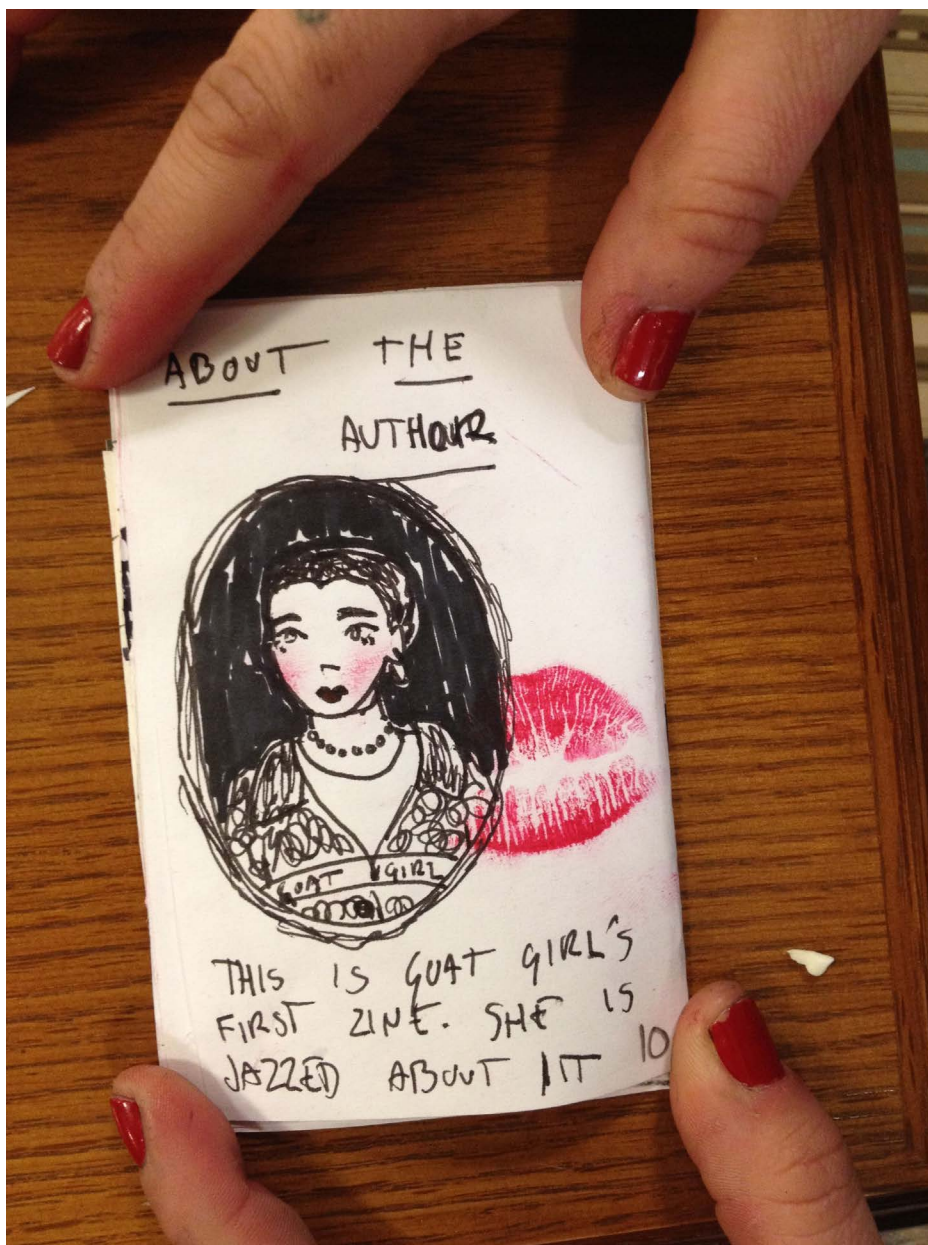 ABOUT THE
AUTHOUR
GOAT GIRL
THIS IS GOAT GIRL'S
FIRST ZINE. SHE IS
JAZZED ABOUT IT
10